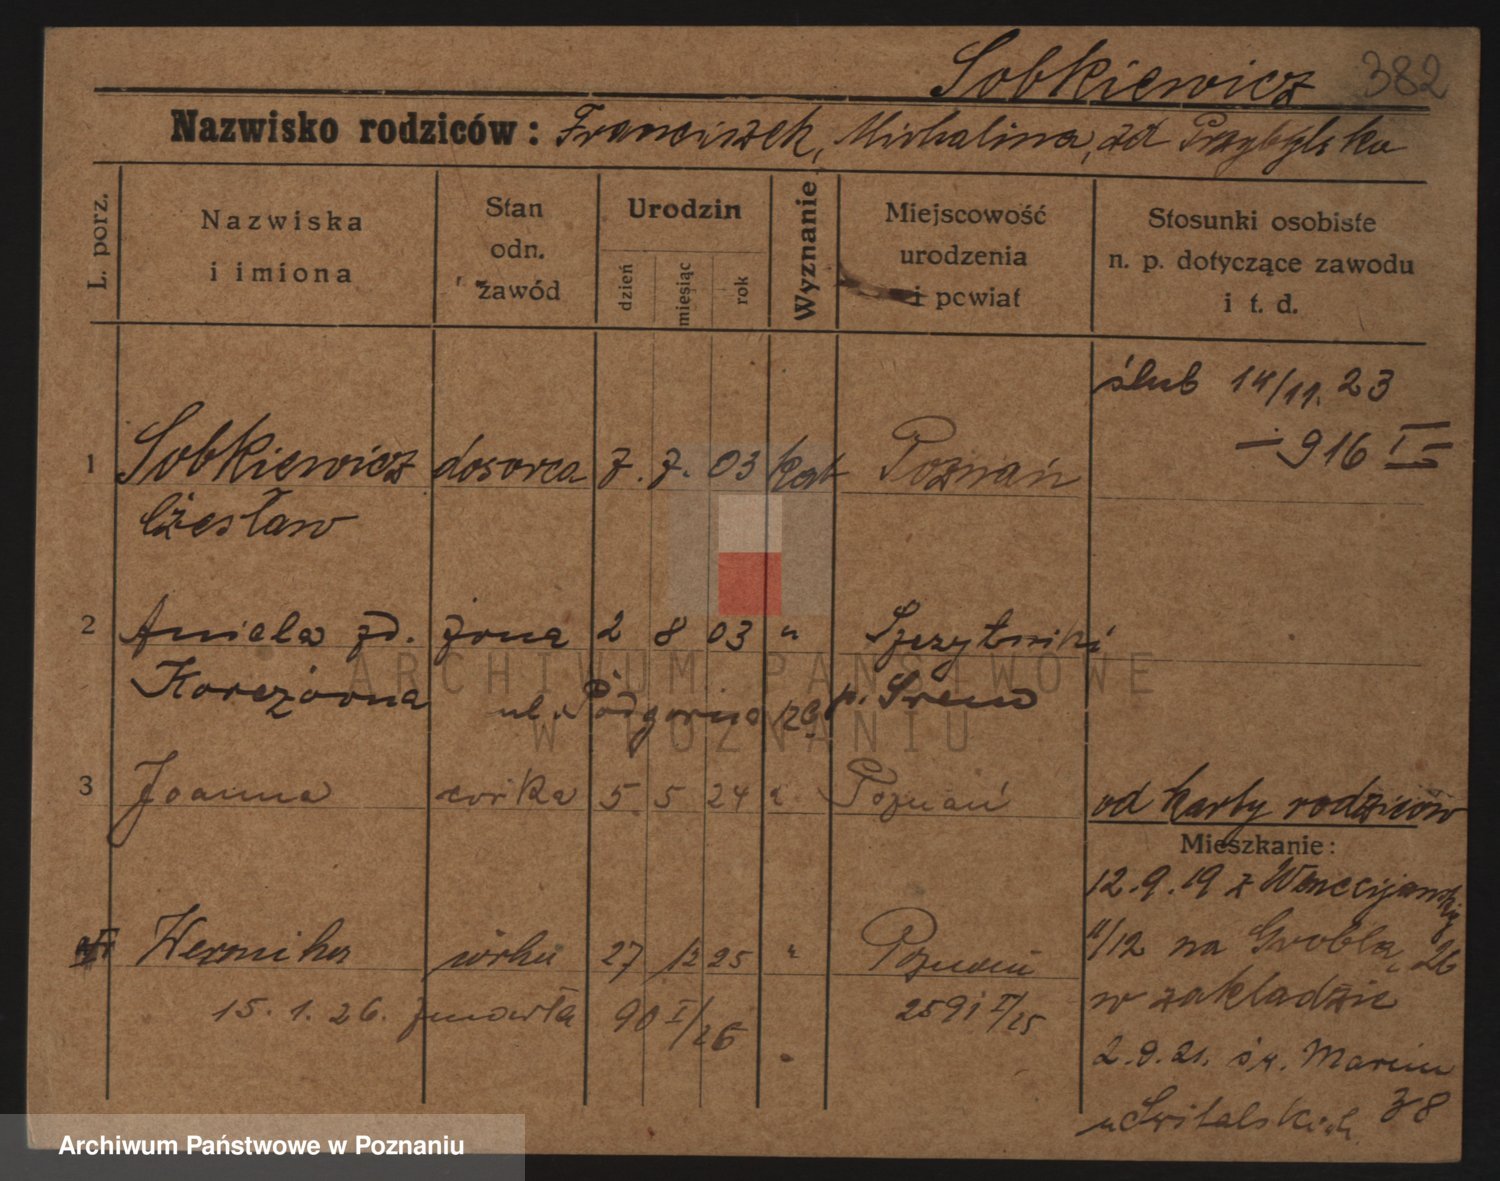 Sobkiewicz 382
Nazwisko rodziców: Franciszek, Michalina, zd Przybylska
L. porz.
Nazwiska
i imiona
Stan
odn.
zawód
Urodzin
dzień
miesiąc
rok
Wyznanie
Miejscowość
urodzenia
i powiat
Stosunki osobiste
n. p. dotyczące zawodu
i t. d.
ślub 14/11. 23
- 916 I -
1 Sobkiewicz dozorca 7. 7. 03 kat Poznań
Czesław
2 Aniela zd. żona 2 8 03 " Szczytniki
p. Śrem
ul. Podgórna
3 Joanna córka 5 5 24 " Poznań
od karty rodziców
Mieszkanie:
12.9.19 z Wenecjańskiej
Weronika córka 27 12 25 " Poznań
11/12 na Groblę, 26
15. 1. 26. zmarła 90 I/26 2591 V/25
w zakładzie
2.9.21. św. Marcin
u Świtalskich 38
ARCHIWUM PAŃSTWOWE
W POZNANIU
Archiwum Państwowe w Poznaniu